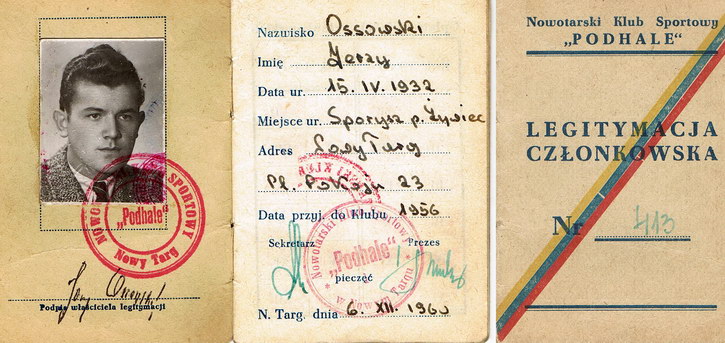 NOWOTARSKI KLUB SPORTOWY
„Podhale"
Nowy Targ
Podpis właściciela legitymacji
Nazwisko Ossowski
Imię Jerzy
Data ur. 15. IV. 1932
Miejsce ur. Sporysz p. Żywiec
Adres Nowy Targ
Pl. Pokoju 23
Data przyj. do Klubu 1956
Sekretarz Prezes
Nowotarski Klub Sportowy
„Podhale"
w Nowym Targu
pieczęć
N. Targ. dnia 6. XII. 1960
Nowotarski Klub Sportowy
„PODHALE"
LEGITYMACJA
CZŁONKOWSKA
Nr 413